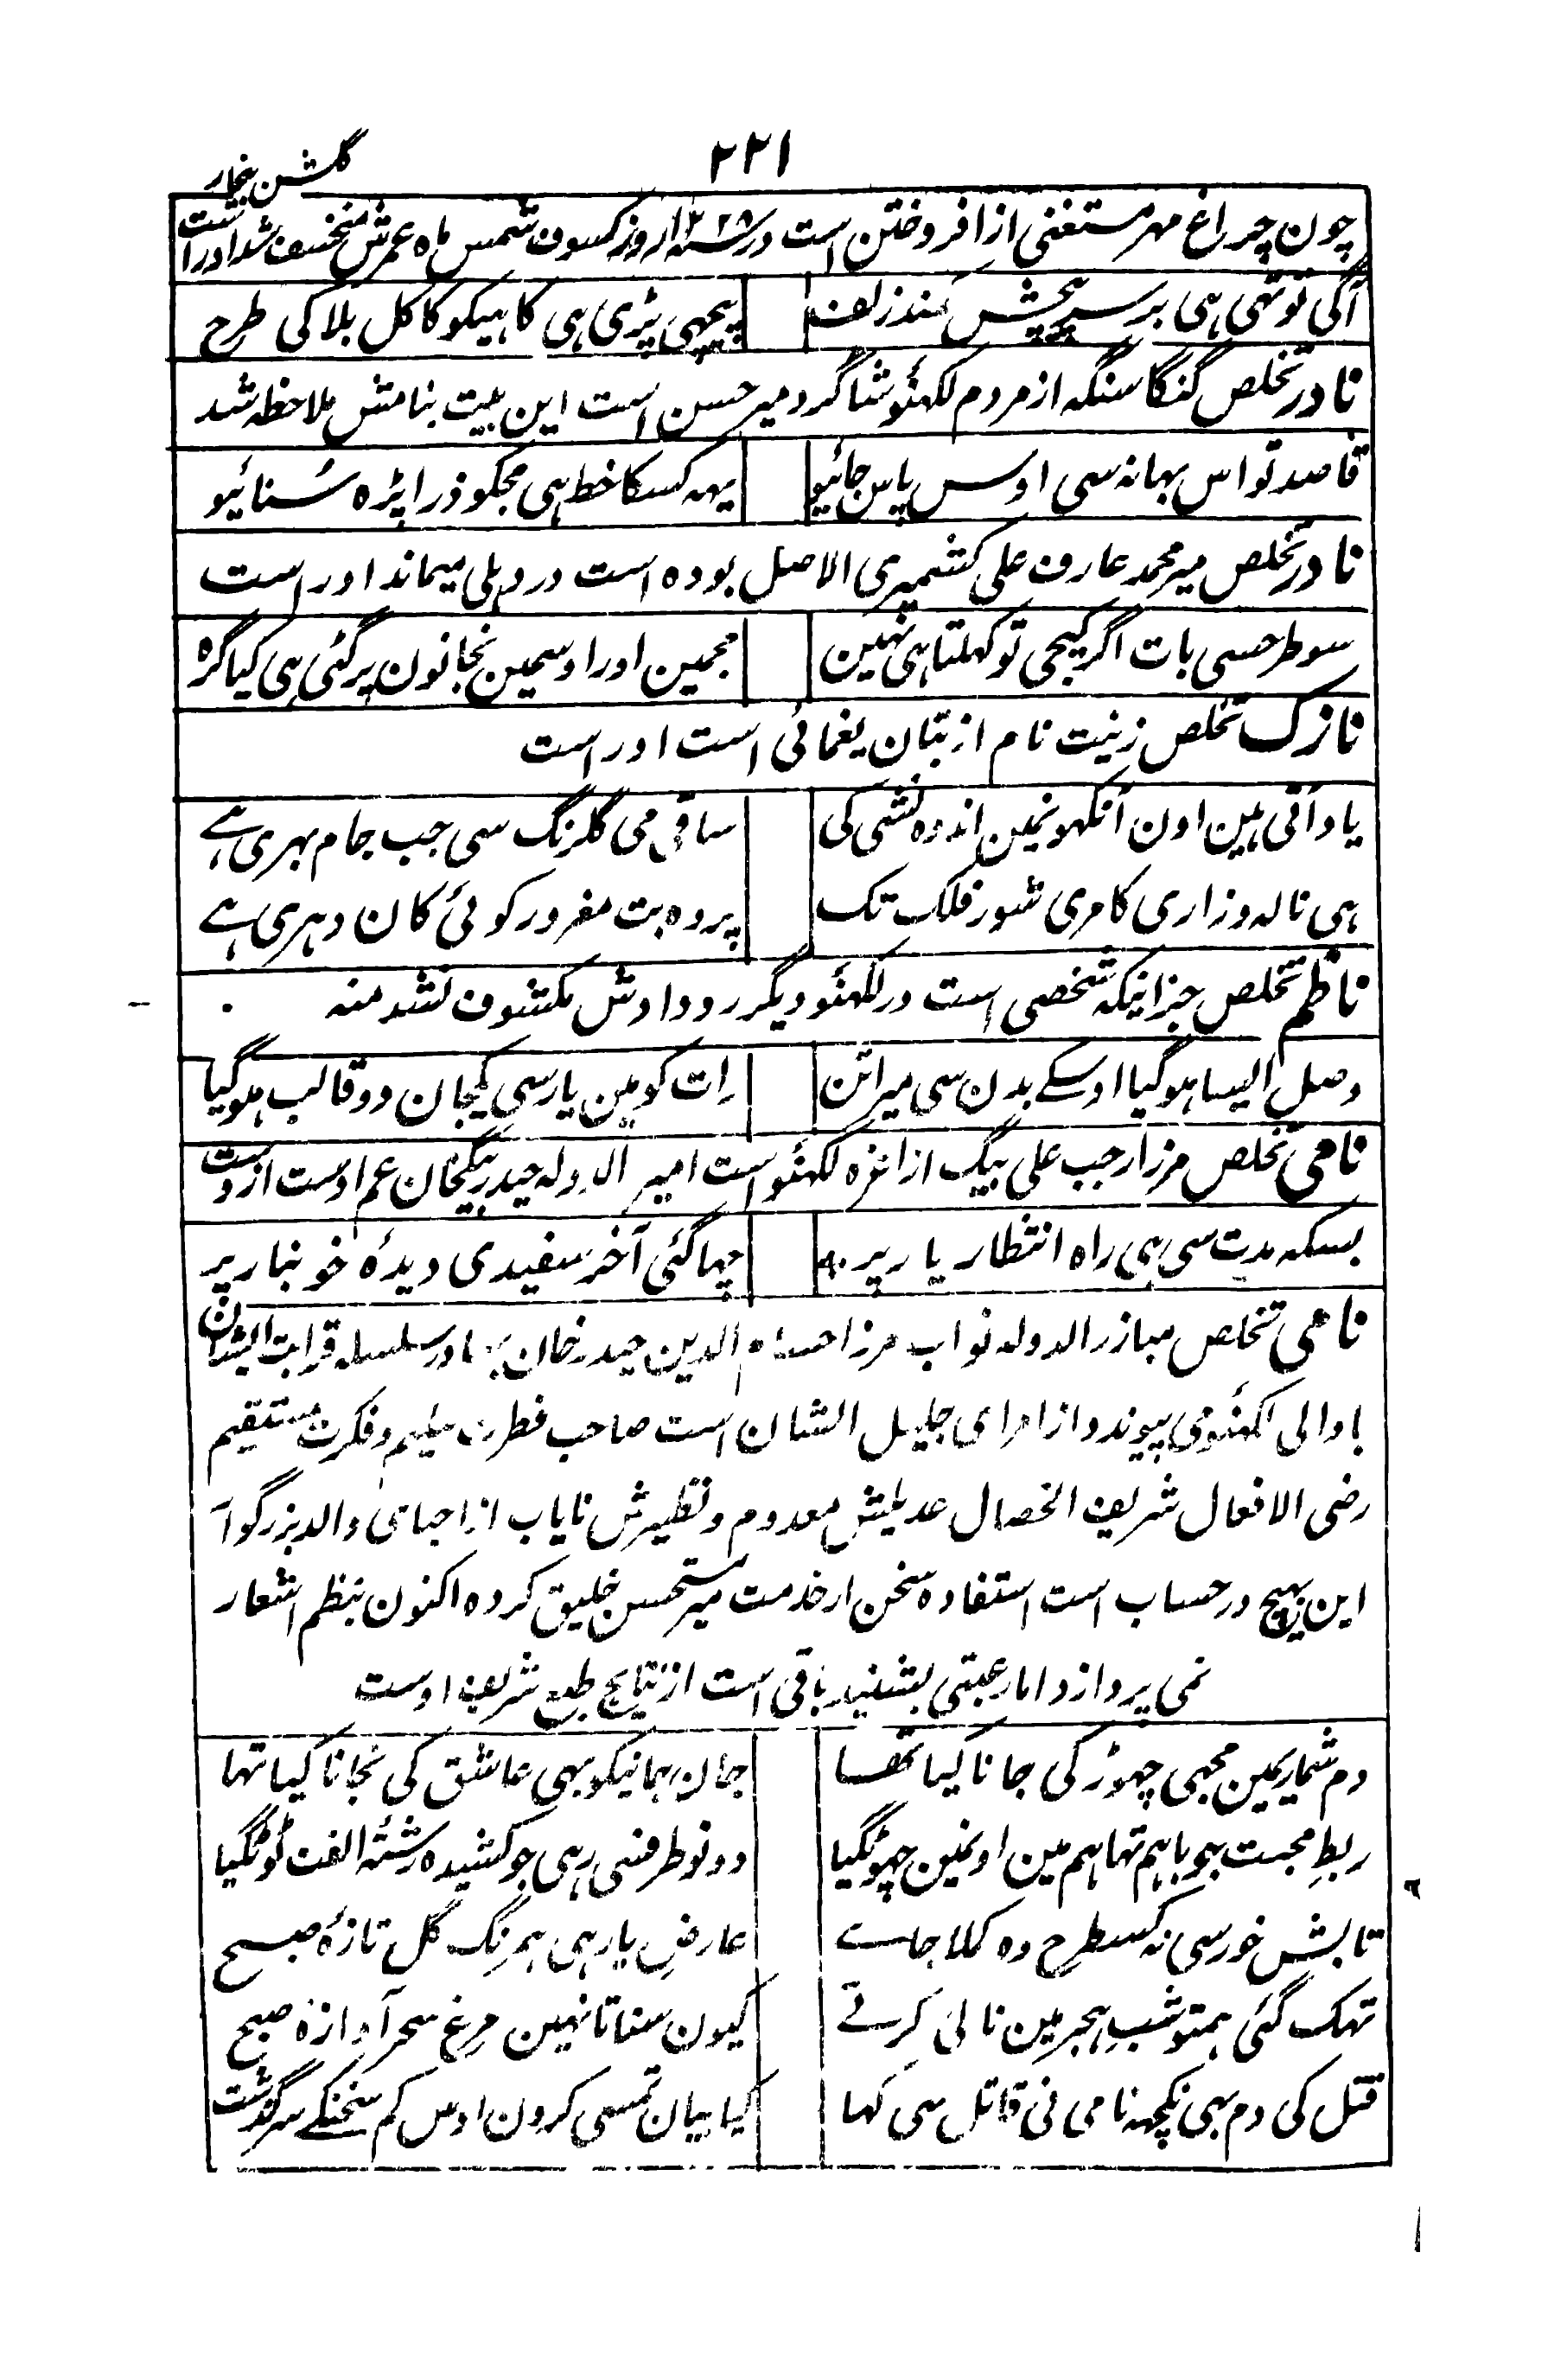 ۲۲۱
گلشن بیخار
چون چراغ مهر مستغنی از افروختن است در سنه ۱۲۲۸ روز کسوف شمس ماه عمرش منخسف شد اوراست
آگی توتهی هی بر سر پیچش کمند زلف پیچهی پڑی هی کاهیکو کاکل بلا کی طرح
نادر تخلص گنگا سنگه از مردم لکهنؤ شاگرد میر حسن است این بیت بنامش ملاحظه شد
قاصد تو اس بهانه سی اوس پاس جائیو یهه کسکا خط هی مجکو ذرا پڑه سُنائیو
نادر تخلص میر محمد عارف علی کشمیری الاصل بوده است در دهلی میماند اوراست
سو طرحسی بات اگر کیجی تو کهلتا هی نهین مجمین اور اوسمین نجانون پرگئی هی کیا گره
نازک تخلص زینت نام از بتان یغمائی است اوراست
یاد آتی هین اون آنکهونمین اندوه کشی کی ساقی می گلرنگ سی جب جام بهری ہے
هی ناله و زاری کا مری شور فلک تک پر وه بت مغرور کوئی کان دهری ہے
ناظم تخلص جز اینکه شخصی است در لکهنؤ دیگر رودادش مکشوف نشد منه
وصل ایسا هوگیا اوسکے بدن سی میرا تن رات کو مین یار سی یکجان دو قالب هوگیا
نامی تخلص مرزا رجب علی بیگ از اعزه لکهنؤ است امیر الدوله حیدر بیگخان عم اوست ازوست
بسکه مدت سی هی راه انتظار یار پر چهاگئی آخر سفیدی دیدهٔ خونبار پر
نامی تخلص مبارز الدوله نواب مرزا حسام الدین حیدر خان بهادر سلسله قرابت ایشان
با والی لکهنؤ می پیوندد از امرای جلیل الشان است صاحب فطرت سلیم و فکرت مستقیم
رضی الافعال شریف الخصال عدیلش معدوم و نظیرش نایاب از احبای والد بزرگوار
این هیچ در حساب است استفاده سخن از خدمت میر مستحسن خلیق کرده اکنون بنظم اشعار
نمی پردازد اما رغبتی بشنیدن باقی است از نتایج طبع شریف اوست
دم شماریمین مجهی چهوڑ کی جانا کیا تها جان همانیکو بهی عاشق کی نجانا کیا تها
ربطِ محبت جو باهم تها هم مین اونمین چهوٹگیا دونو طرفسی رهی جو کشیده رشتهٔ الفت ٹوٹگیا
تابش خور سی نه کسطرح وه کملا جاے عارضِ یار هی همرنگ گل تازهٔ صبح
تهک گئی همتو شبِ هجر مین نالی کرتے کیون سناتا نهین مرغ سحر آوازهٔ صبح
قتل کی دم بهی نکچهه نامی نی قاتل سی کها کیا بیان تمسی کرون اوس کم سخنکے سرگذشت